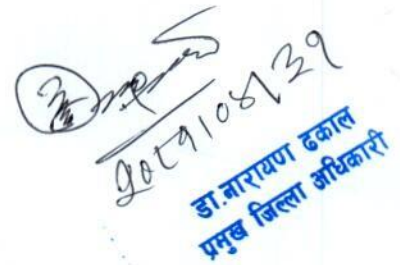 २०८१।०४/३१
डा.नारायण ढकाल
प्रमुख जिल्ला अधिकारी